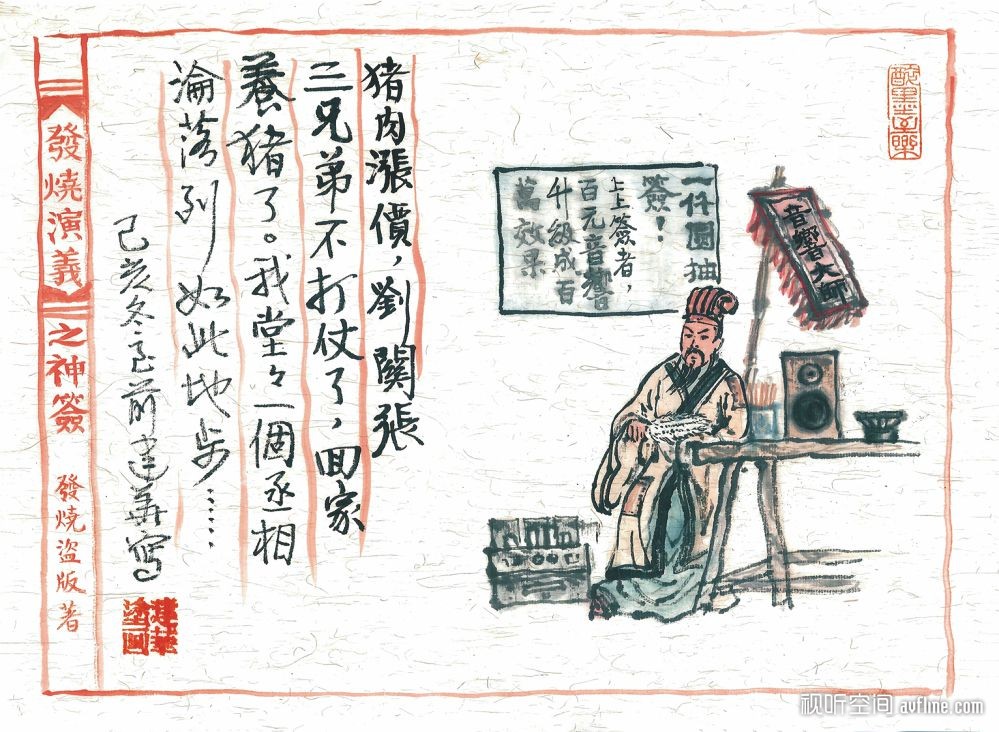 音響大師
一仟圓抽
簽!
上上簽者，
百元音響
升級成百
萬效果
猪肉漲價，劉關張
三兄弟不打仗了，回家
養猪了。我堂々一個丞相
淪落到如此地步……
己亥冬至前建華寫
建華
發燒演義之神簽
發燒盜版著
视听空间 avfline.com